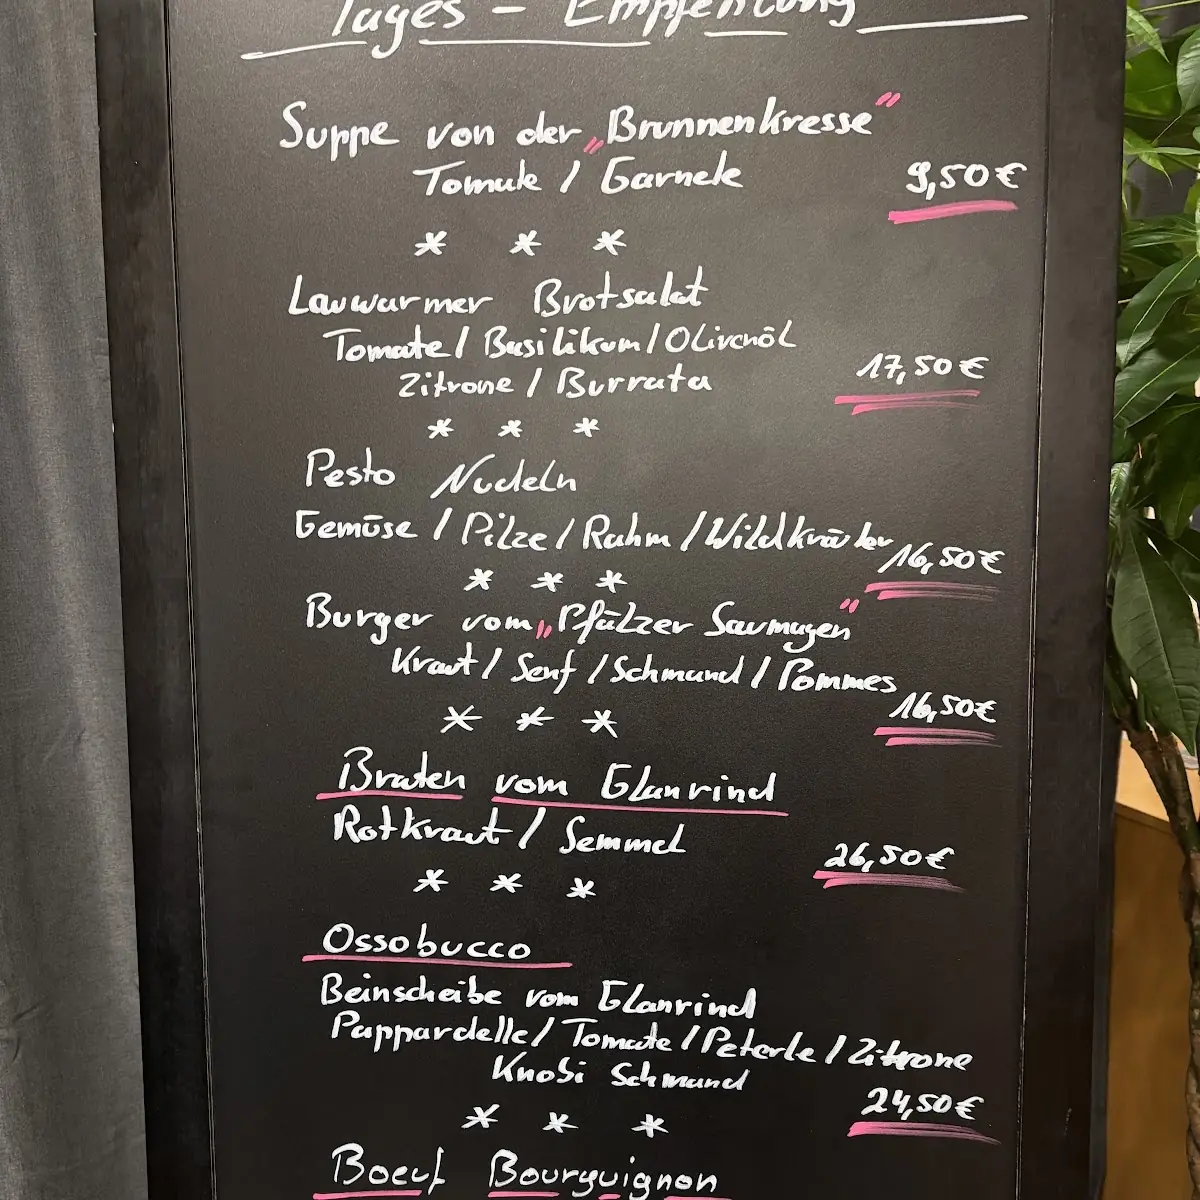 Tages - Empfehlung
Suppe von der „Brunnenkresse"
Tomate / Garnele 9,50€
* * *
Lauwarmer Brotsalat
Tomate / Basilikum / Olivenöl
Zitrone / Burrata 17,50€
* * *
Pesto Nudeln
Gemüse / Pilze / Rahm / Wildkräuter 16,50€
* * *
Burger vom „Pfälzer Saumagen"
Kraut / Senf / Schmand / Pommes
16,50€
* * *
Braten vom Glanrind
Rotkraut / Semmel 26,50€
* * *
Ossobucco
Beinscheibe vom Glanrind
Pappardelle / Tomate / Peterle / Zitrone
Knobi Schmand
24,50€
* * *
Boeuf Bourguignon